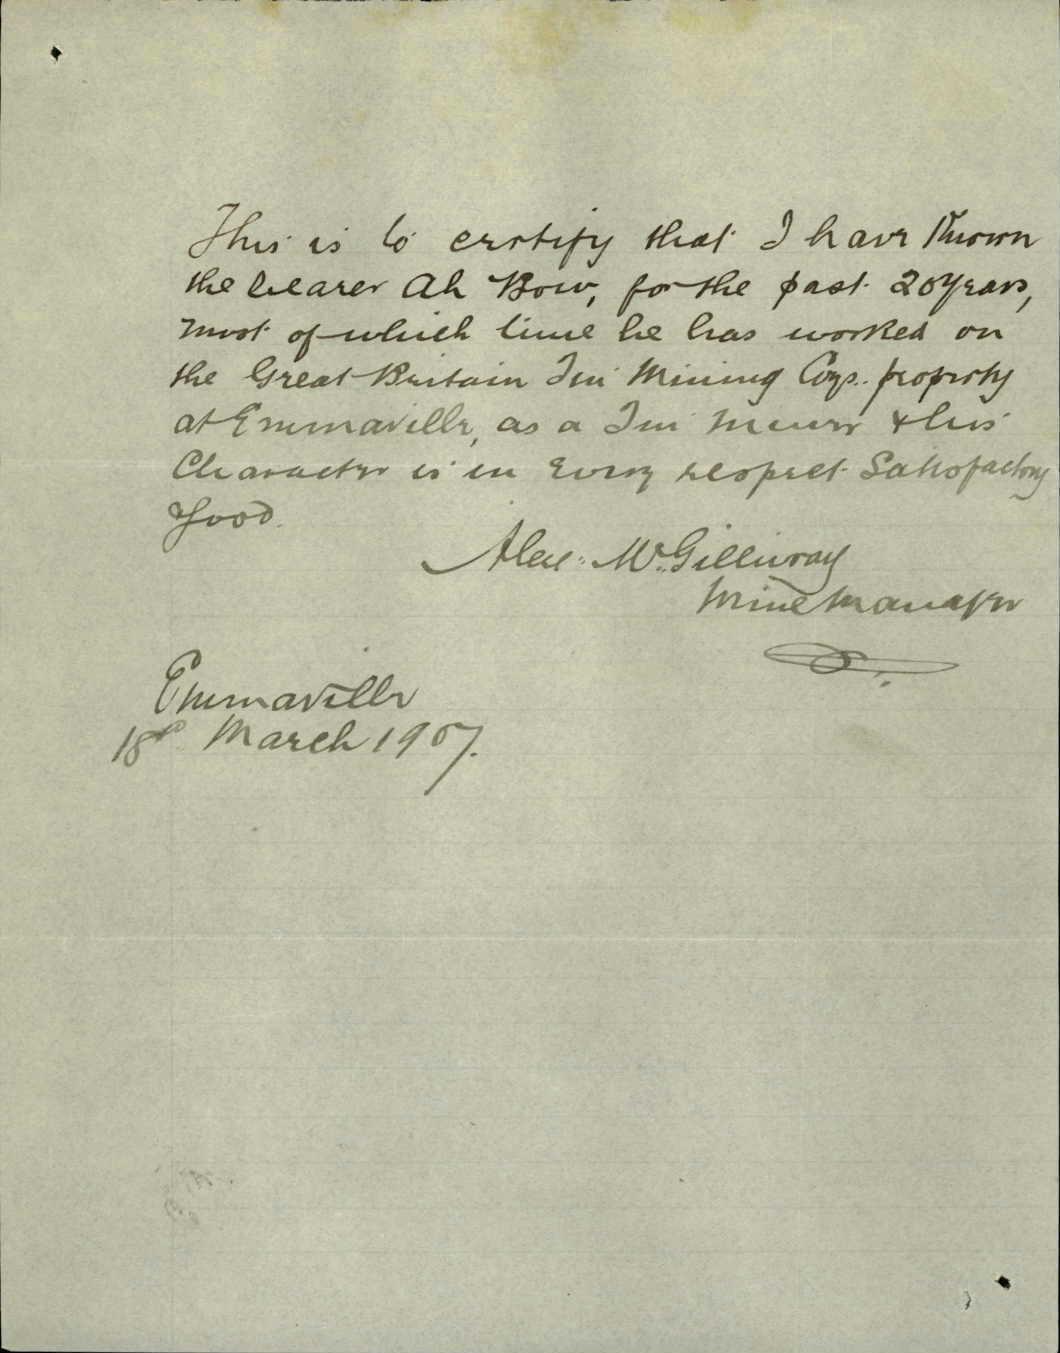 This is to certify that I have Known
the bearer Ah Bow, for the past 20 years,
most of which time he has worked on
the Great Britain Tin Mining Coys. property
at Emmaville, as a Tin Miner & his
Character is in every respect Satisfactory
& good.
Alex. McGillivray
Mine Manager
Emmaville
18th March 1907.